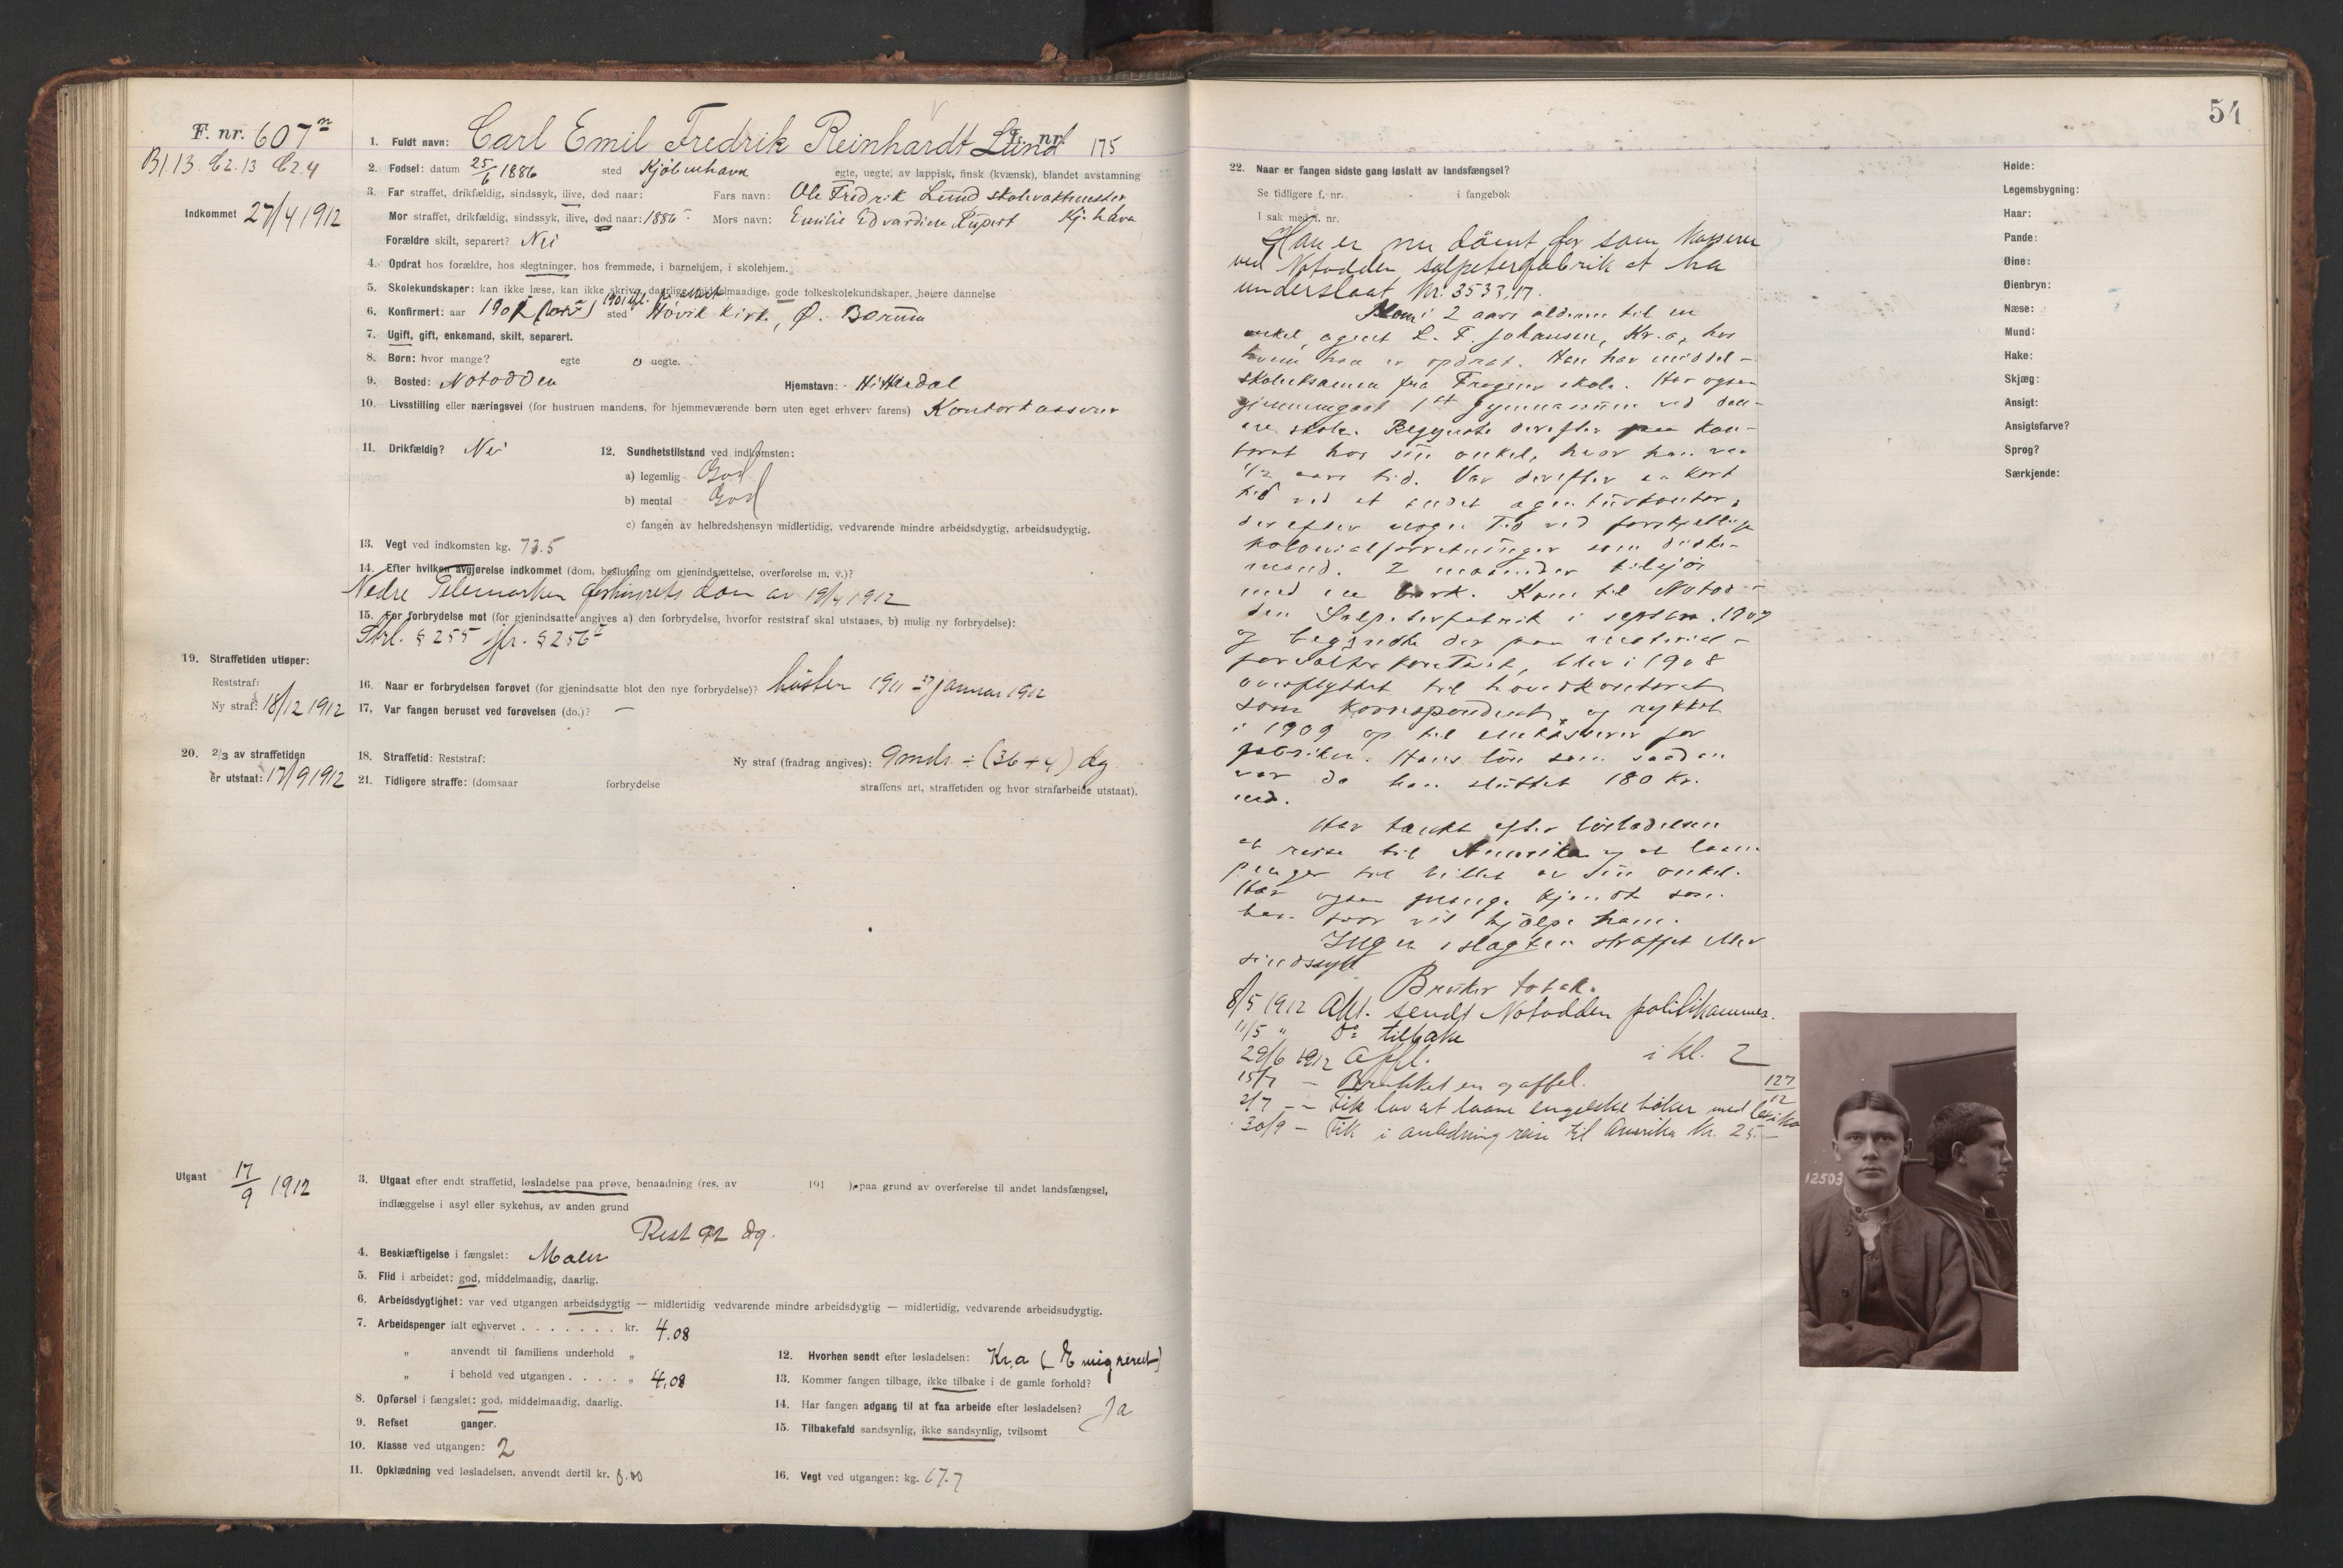 F. nr. 607
Bl. 13. C2. 13 C2. 4
Indkommet 27/4 1912
1. Fuldt navn: Carl Emil Fredrik Reinhardt Lund F. nr. 175
2. Fødsel: datum 25/6 1886 sted Kjøbenhavn egte, uegte, av lappisk, finsk (kvænsk), blandet avstamning
3. Far straffet, drikfældig, sindssyk, ilive, død naar: Fars navn: Ole Fredrik Lund skolevaktmester
Mor straffet, drikfældig, sindssyk, ilive, død naar: 1886 Mors navn: Emilie Edvardine Rupert Kj.havn
Forældre skilt, separert? Nei
4. Opdrat hos forældre, hos slegtninger, hos fremmede, i barnehjem, i skolehjem.
5. Skolekundskaper: kan ikke læse, kan ikke skrive, daarlige, middelmaadige, gode folkeskolekundskaper, høiere dannelse
6. Konfirmert: aar 1901 sted Høvik kirke, Ø. Bærum
7. Ugift, gift, enkemand, skilt, separert.
8. Børn: hvor mange? egte 0 uegte.
9. Bosted: Notodden Hjemstavn: Hitterdal
10. Livsstilling eller næringsvei (for hustruen mandens, for hjemmeværende børn uten eget erhverv farens) Kontorkasserer
11. Drikfældig? Nei 12. Sundhetstilstand ved indkomsten:
a) legemlig God
b) mental God
c) fangen av helbredshensyn midlertidig, vedvarende mindre arbeidsdygtig, arbeidsudygtig.
13. Vegt ved indkomsten kg. 73.5
14. Efter hvilken avgjørelse indkommet (dom, beslutning om gjenindsættelse, overførelse m. v.)?
Nedre Telemarken forhørsrets dom av 19/4 1912
15. For forbrydelse mot (for gjenindsatte angives a) den forbrydelse, hvorfor reststraf skal utstaaes, b) mulig ny forbrydelse):
Strl. § 255 jfr. § 256
19. Straffetiden utløper:
Reststraf:
Ny straf: 18/12 1912
16. Naar er forbrydelsen forøvet (for gjenindsatte blot den nye forbrydelse)? høsten 1911 - 27 januar 1912
17. Var fangen beruset ved forøvelsen (do.)? —
20. 2/3 av straffetiden
er utstaat: 17/9 1912
18. Straffetid: Reststraf: Ny straf (fradrag angives): 9 mdr. ÷ (36 + 4) dg
21. Tidligere straffe: (domsaar forbrydelse straffens art, straffetiden og hvor strafarbeide utstaat).
Utgaat 17/9 1912
3. Utgaat efter endt straffetid, løsladelse paa prøve, benaadning (res. av 191 ), paa grund av overførelse til andet landsfængsel,
indlæggelse i asyl eller sykehus, av anden grund
Rest 92 dg.
4. Beskjæftigelse i fængslet: Maler
5. Flid i arbeidet: god, middelmaadig, daarlig.
6. Arbeidsdygtighet: var ved utgangen arbeidsdygtig — midlertidig vedvarende mindre arbeidsdygtig — midlertidig, vedvarende arbeidsudygtig.
7. Arbeidspenger ialt erhvervet . . . . . . . kr. 4.08
" anvendt til familiens underhold "
" i behold ved utgangen . . . . " 4.08
8. Opførsel i fængslet: god, middelmaadig, daarlig.
9. Refset ganger.
10. Klasse ved utgangen: 2
11. Opklædning ved løsladelsen, anvendt dertil kr. 8.00
12. Hvorhen sendt efter løsladelsen: Kr.a (Emigreret)
13. Kommer fangen tilbage, ikke tilbake i de gamle forhold?
14. Har fangen adgang til at faa arbeide efter løsladelsen? Ja
15. Tilbakefald sandsynlig, ikke sandsynlig, tvilsomt
16. Vegt ved utgangen: kg. 67.7
54
22. Naar er fangen sidste gang løslatt av landsfængsel?
Se tidligere f. nr. i fangebok
I sak med f. nr.
Han er nu dømt for som kasserer
ved Notodden salpeterfabrik at ha
underslaat kr. 3533,17.
Kom i 2 aars alderen til en
onkel, agent L. F. Johansen, Kr.a, hos
hvem han er opdrat. Han har middel-
skoleeksamen fra Frogner skole. Har ogsaa
gjennemgaat 1st gymnasium ved den-
ne skole. Begynte derefter paa kon-
toret hos sin onkel, hvor han var
1/2 aars tid. Var derefter en kort
tid ved et andet agenturkontor,
derefter nogen tid ved forskjellige
kolonialforretninger som diske-
mand. 2 maaneder tilsjøs
med en bark. Kom til Notod-
den Salpeterfabrik i septbr. 1907
og begyndte der paa material-
forvalterkontoret, blev i 1908
overflyttet til hovedkontoret
som korrespondent og rykket
i 1909 op til kasserer for
fabriken. Hans løn som saadan
var da han sluttet 180 kr.
md.
Har tænkt efter løsladelsen
at reise til Amerika og at laane
penger til billet av sin onkel.
Har ogsaa mange kjendte som
han tror vil hjælpe ham.
Ingen i slægten straffet eller
sindssyk
Bruker tobak.
8/5 1912 Akt. sendt Notodden politikammer.
11/5 " Do tilbake
29/6 1912 Opfl. i kl. 2
15/7 — Brukket en gaffel. 127/12
2/7 — Fik lov at laane engelske bøker med leksikon
30/9 — Fik i anledning reise til Amerika kr. 25.—
Høide:
Legemsbygning:
Haar:
Pande:
Øine:
Øienbryn:
Næse:
Mund:
Hake:
Skjæg:
Ansigt:
Ansigtsfarve?
Sprog?
Særkjende:
12503